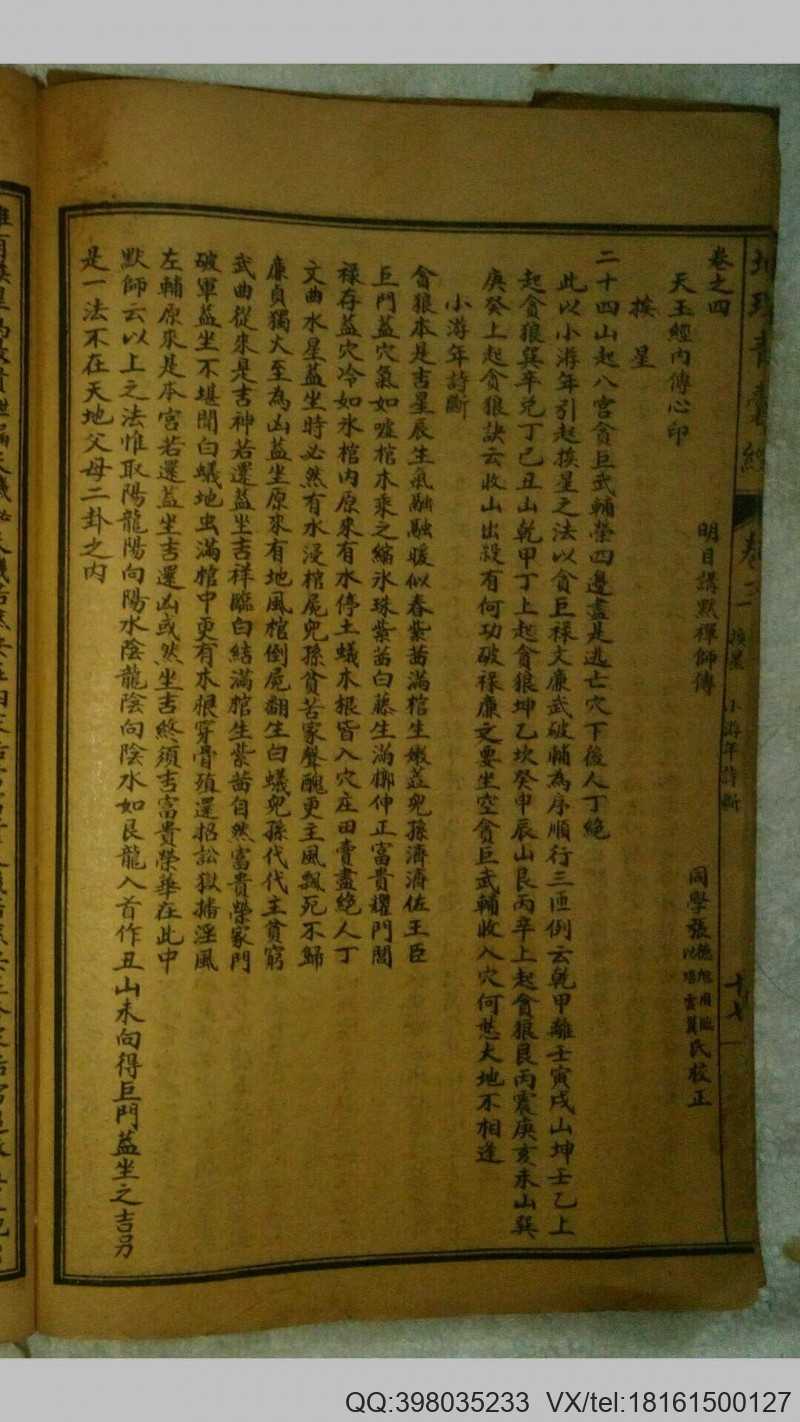 卷之四
天玉經內傳心印
明目講默禪師傳
同學張
氏校正
挨星
二十四山起八宮貪巨武輔榮四邊盡是逃亡穴下後人丁絶
此以小游年引起挨星之法以貪巨祿文廉武破輔為序順行三匝倒云乾甲離壬寅戌山坤壬乙上
起貪狼巽辛兌丁巳丑山乾甲丁上起貪狼坤乙坎癸申辰山艮丙辛上起貪狼艮丙震庚亥未山巽
庚癸上起貪狼訣云收山出殺有何功破祿廉文要坐空貪巨武輔收入穴何愁大地不相逢
小游年詩斷
貪狼本是吉星辰生氣融融暖似春紫茜滿棺生嫩蕋兒孫濟濟佐王臣
巨門葢穴氣如噓棺木乘之縮氷珠紫茜白藤生滿槨仲正富貴耀門閭
祿存葢穴冷如氷棺內原來有水停土蟻木根皆入穴庄田賣盡絶人丁
文曲水星葢坐時必然有水浸棺屍兒孫貧苦家聲醜更主風飄死不歸
廉貞獨火至為凶葢坐原來有地風棺倒屍翻生白蟻兒孫代代主貧窮
武曲從來是吉神若還葢坐吉祥臨白結滿棺生紫茜自然富貴榮家門
破軍葢坐不堪聞白蟻地虫滿棺中更有木根穿骨殖還招訟獄播淫風
左輔原來是本宮若還葢坐吉還凶或然坐吉終須吉富貴榮華在此中
默師云以上之法惟取陽龍陽向陽水陰龍陰向陰水如艮龍入首作丑山未向得巨門葢坐之吉另
是一法不在天地父母二卦之內
挨星 小游年詩斷
十七
QQ:398035233 VX/tel:18161500127